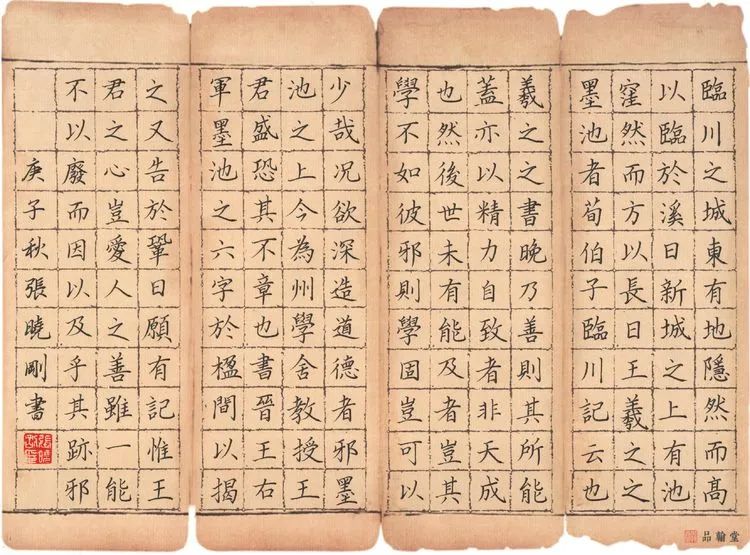 臨川之城東有地隱然而高
以臨於溪曰新城之上有池
窪然而方以長曰王羲之之
墨池者荀伯子臨川記云也
羲之之書晚乃善則其所能
蓋亦以精力自致者非天成
也然後世未有能及者豈其
學不如彼邪則學固豈可以
少哉况欲深造道德者邪墨
池之上今為州學舍教授王
君盛恐其不章也書晉王右
軍墨池之六字於楹間以揭
之又告於鞏曰願有記惟王
君之心豈愛人之善雖一能
不以廢而因以及乎其跡邪
庚子秋張曉剛書
品翰堂